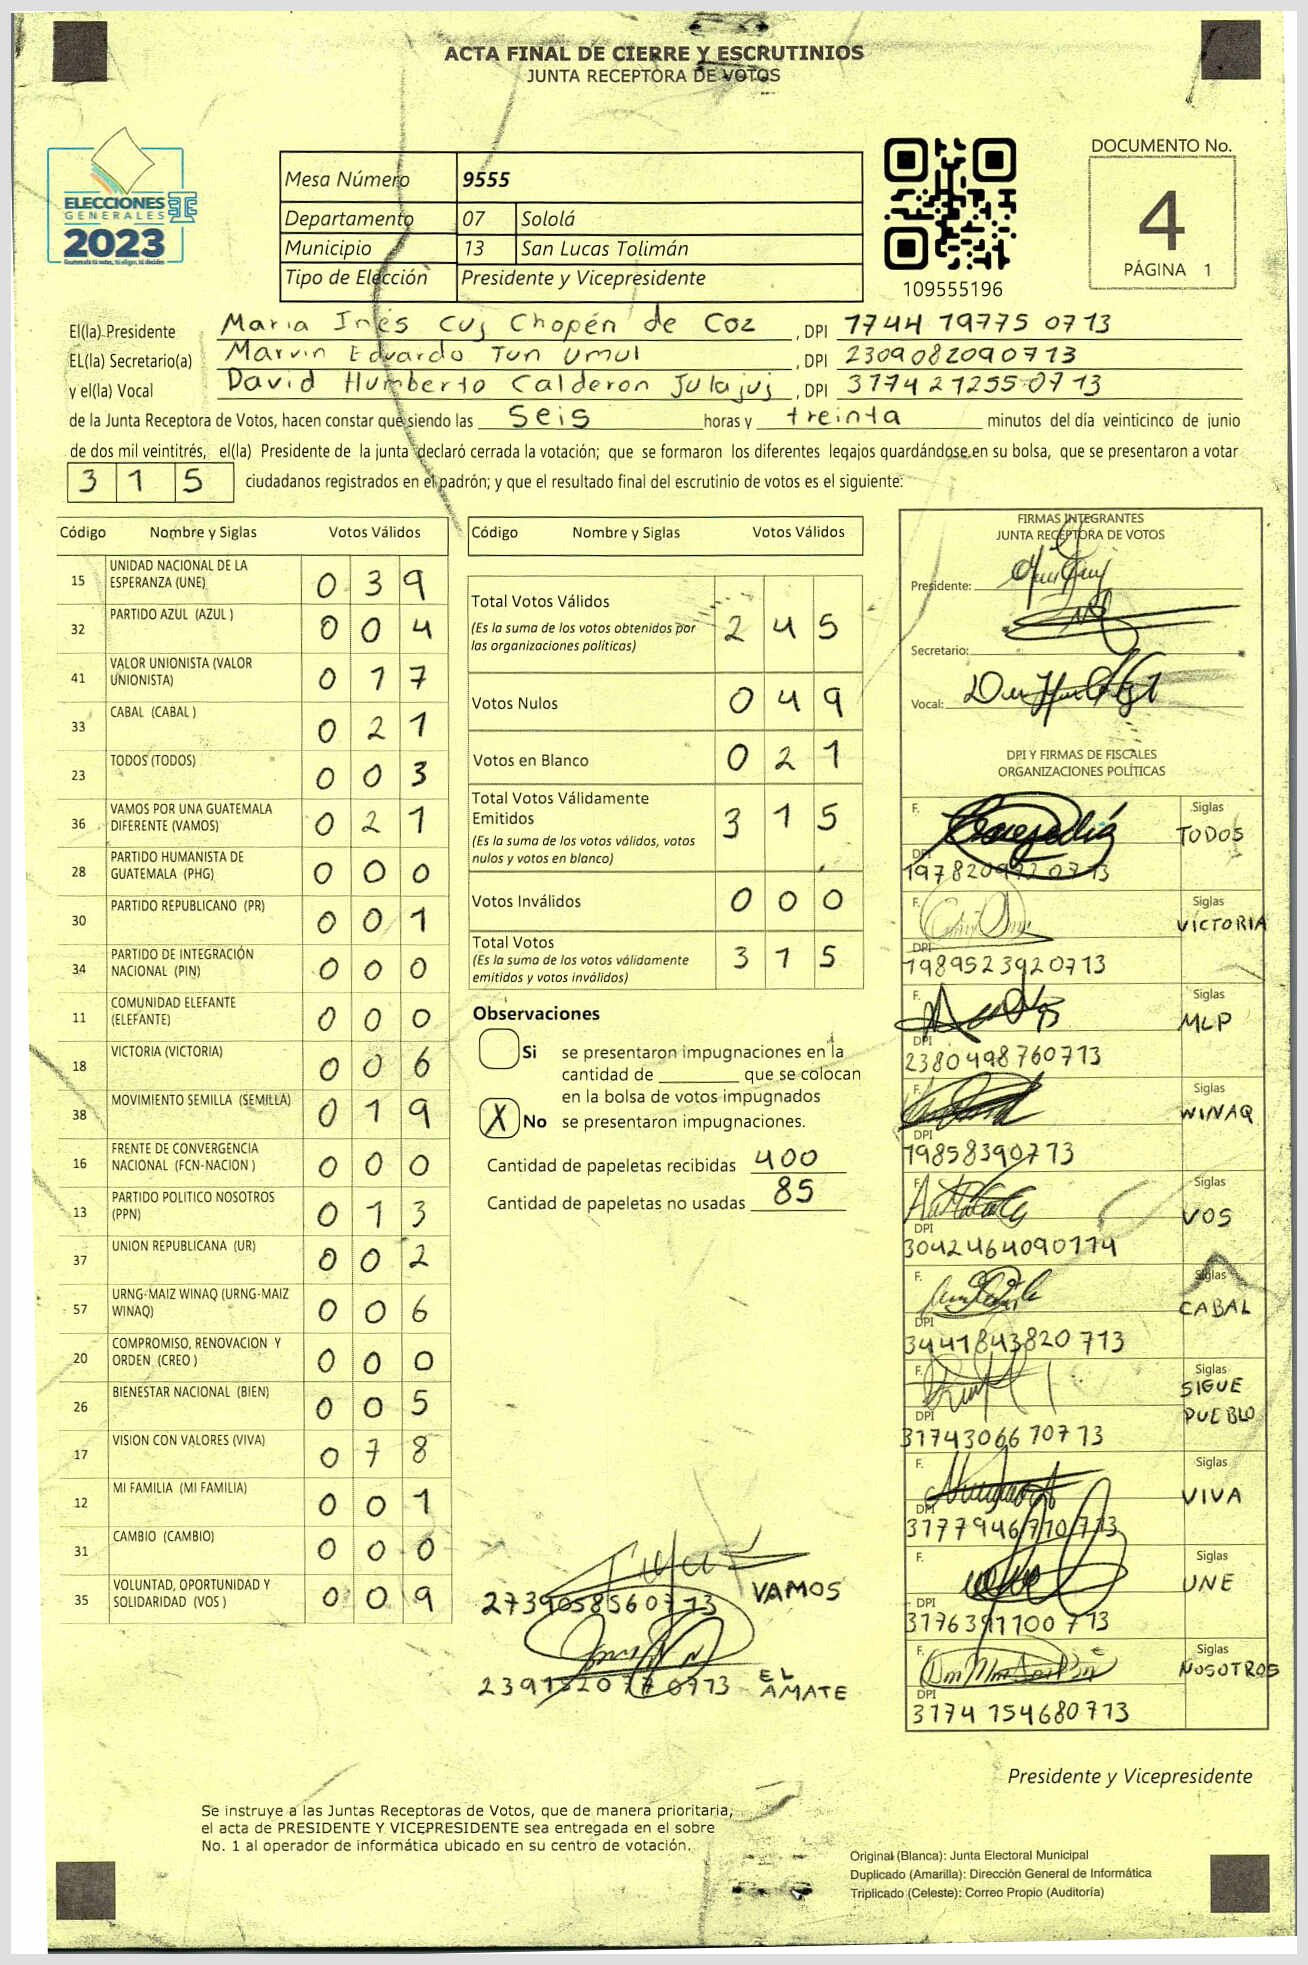 ACTA FINAL DE CIERRE Y ESCRUTINIOS
JUNTA RECEPTORA DE VOTOS
ELECCIONES
GENERALES
2023
Mesa Número 9555
Departamento 07 Sololá
Municipio 13 San Lucas Tolimán
Tipo de Elección Presidente y Vicepresidente
109555196
DOCUMENTO No.
4
PÁGINA 1
El(la) Presidente Maria Inés Cuj Chopén de Coz , DPI 1744 19775 0713
EL(la) Secretario(a) Marvin Eduardo Tun Umul , DPI 2309082090713
y el(la) Vocal David Humberto Calderon Julajuj , DPI 3174 21255 0713
de la Junta Receptora de Votos, hacen constar que siendo las Seis horas y treinta minutos del día veinticinco de junio
de dos mil veintitrés, el(la) Presidente de la junta declaró cerrada la votación; que se formaron los diferentes legajos guardándose en su bolsa, que se presentaron a votar
315 ciudadanos registrados en el padrón; y que el resultado final del escrutinio de votos es el siguiente:
Código Nombre y Siglas Votos Válidos
15 UNIDAD NACIONAL DE LA ESPERANZA (UNE) 039
32 PARTIDO AZUL (AZUL ) 004
41 VALOR UNIONISTA (VALOR UNIONISTA) 017
33 CABAL (CABAL ) 021
23 TODOS (TODOS) 003
36 VAMOS POR UNA GUATEMALA DIFERENTE (VAMOS) 021
28 PARTIDO HUMANISTA DE GUATEMALA (PHG) 000
30 PARTIDO REPUBLICANO (PR) 001
34 PARTIDO DE INTEGRACIÓN NACIONAL (PIN) 000
11 COMUNIDAD ELEFANTE (ELEFANTE) 000
18 VICTORIA (VICTORIA) 006
38 MOVIMIENTO SEMILLA (SEMILLA) 019
16 FRENTE DE CONVERGENCIA NACIONAL (FCN-NACION ) 000
13 PARTIDO POLITICO NOSOTROS (PPN) 013
37 UNION REPUBLICANA (UR) 002
57 URNG-MAIZ WINAQ (URNG-MAIZ WINAQ) 006
20 COMPROMISO, RENOVACION Y ORDEN (CREO ) 000
26 BIENESTAR NACIONAL (BIEN) 005
17 VISION CON VALORES (VIVA) 078
12 MI FAMILIA (MI FAMILIA) 001
31 CAMBIO (CAMBIO) 000
35 VOLUNTAD, OPORTUNIDAD Y SOLIDARIDAD (VOS ) 009
Código Nombre y Siglas Votos Válidos
Total Votos Válidos 245
(Es la suma de los votos obtenidos por
las organizaciones políticas)
Votos Nulos 049
Votos en Blanco 021
Total Votos Válidamente
Emitidos 315
(Es la suma de los votos válidos, votos
nulos y votos en blanco)
Votos Inválidos 000
Total Votos 315
(Es la suma de los votos válidamente
emitidos y votos inválidos)
Observaciones
Si se presentaron impugnaciones en la
cantidad de ________ que se colocan
en la bolsa de votos impugnados
X No se presentaron impugnaciones.
Cantidad de papeletas recibidas 400
Cantidad de papeletas no usadas 85
VAMOS
EL
AMATE
FIRMAS INTEGRANTES
JUNTA RECEPTORA DE VOTOS
Presidente:
Secretario:
Vocal:
DPI Y FIRMAS DE FISCALES
ORGANIZACIONES POLÍTICAS
F. Siglas
TODOS
DPI
F. Siglas
VICTORIA
DPI
1989523920713
F. Siglas
MLP
DPI
2380498760713
F. Siglas
WINAQ
DPI
19858390713
F. Siglas
VOS
DPI
3042464090114
F. Siglas
CABAL
DPI
3441843820 713
F. Siglas
SIGUE
PUEBLO
DPI
3174306670713
F. Siglas
VIVA
DPI
F. Siglas
UNE
DPI
3176391100 713
F. Siglas
NOSOTROS
DPI
3174 154680713
Presidente y Vicepresidente
Se instruye a las Juntas Receptoras de Votos, que de manera prioritaria,
el acta de PRESIDENTE Y VICEPRESIDENTE sea entregada en el sobre
No. 1 al operador de informática ubicado en su centro de votación.
Original (Blanca): Junta Electoral Municipal
Duplicado (Amarilla): Dirección General de Informática
Triplicado (Celeste): Correo Propio (Auditoría)